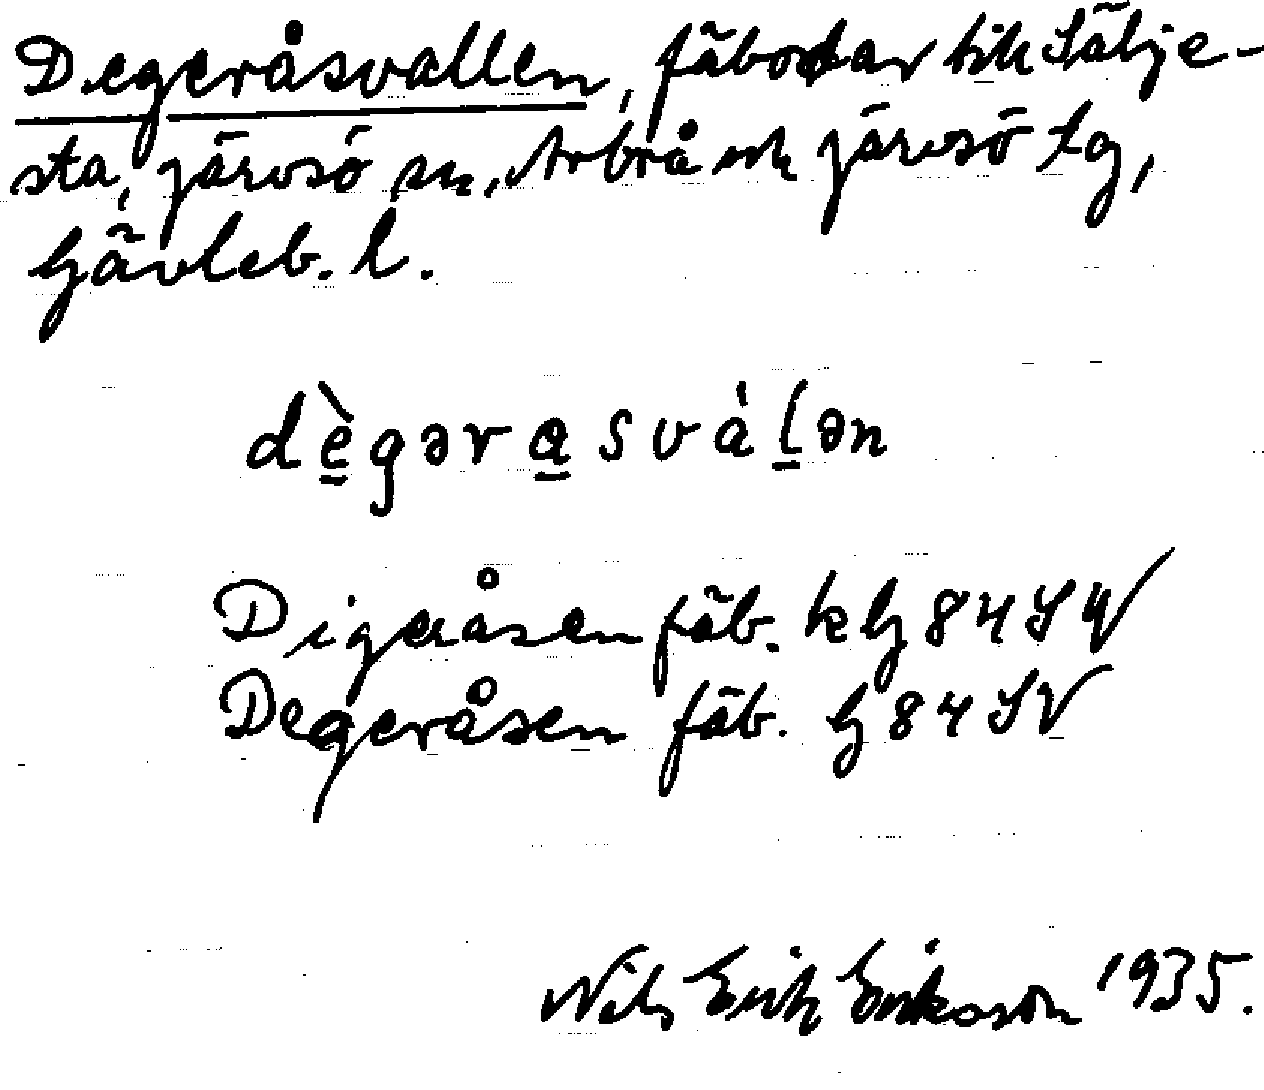 Degeråsvallen, fäbodar till Sälje-
sta, Järvsö sn, Arbrå och Järvsö tg,
Gävleb. l.
dègərasvàlən
Digeråsen fäb. k G 84 SV
Degeråsen fäb. G 84 SV
Nils Erik Eriksson 1935.